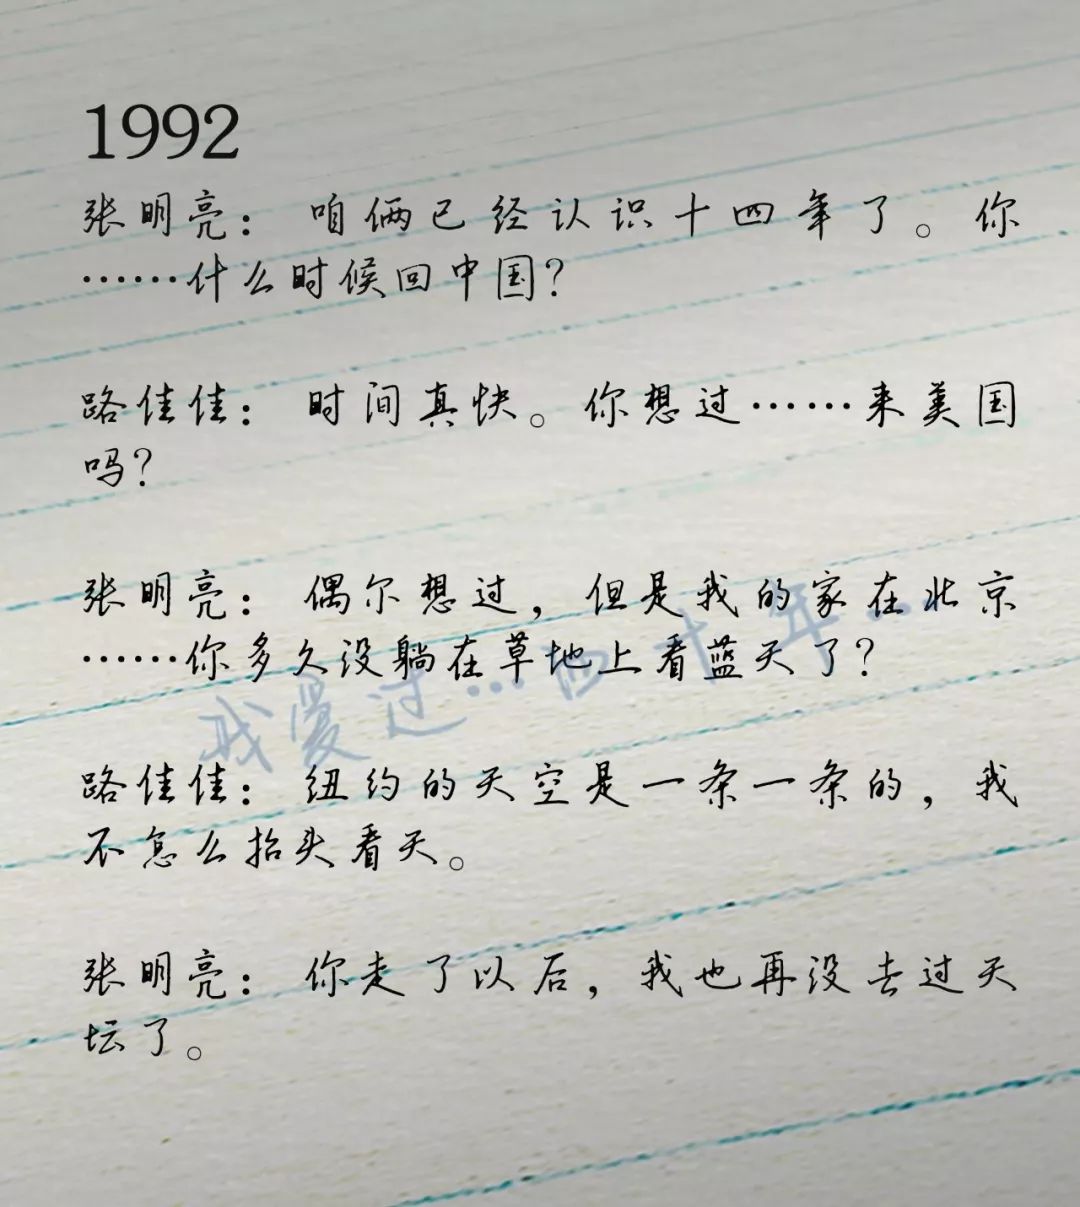 1992
张明亮：咱俩已经认识十四年了。你
……什么时候回中国?
路佳佳：时间真快。你想过……来美国
吗?
张明亮：偶尔想过，但是我的家在北京
……你多久没躺在草地上看蓝天了?
我爱过…四十年…
路佳佳：纽约的天空是一条一条的，我
不怎么抬头看天。
张明亮：你走了以后，我也再没去过天
坛了。